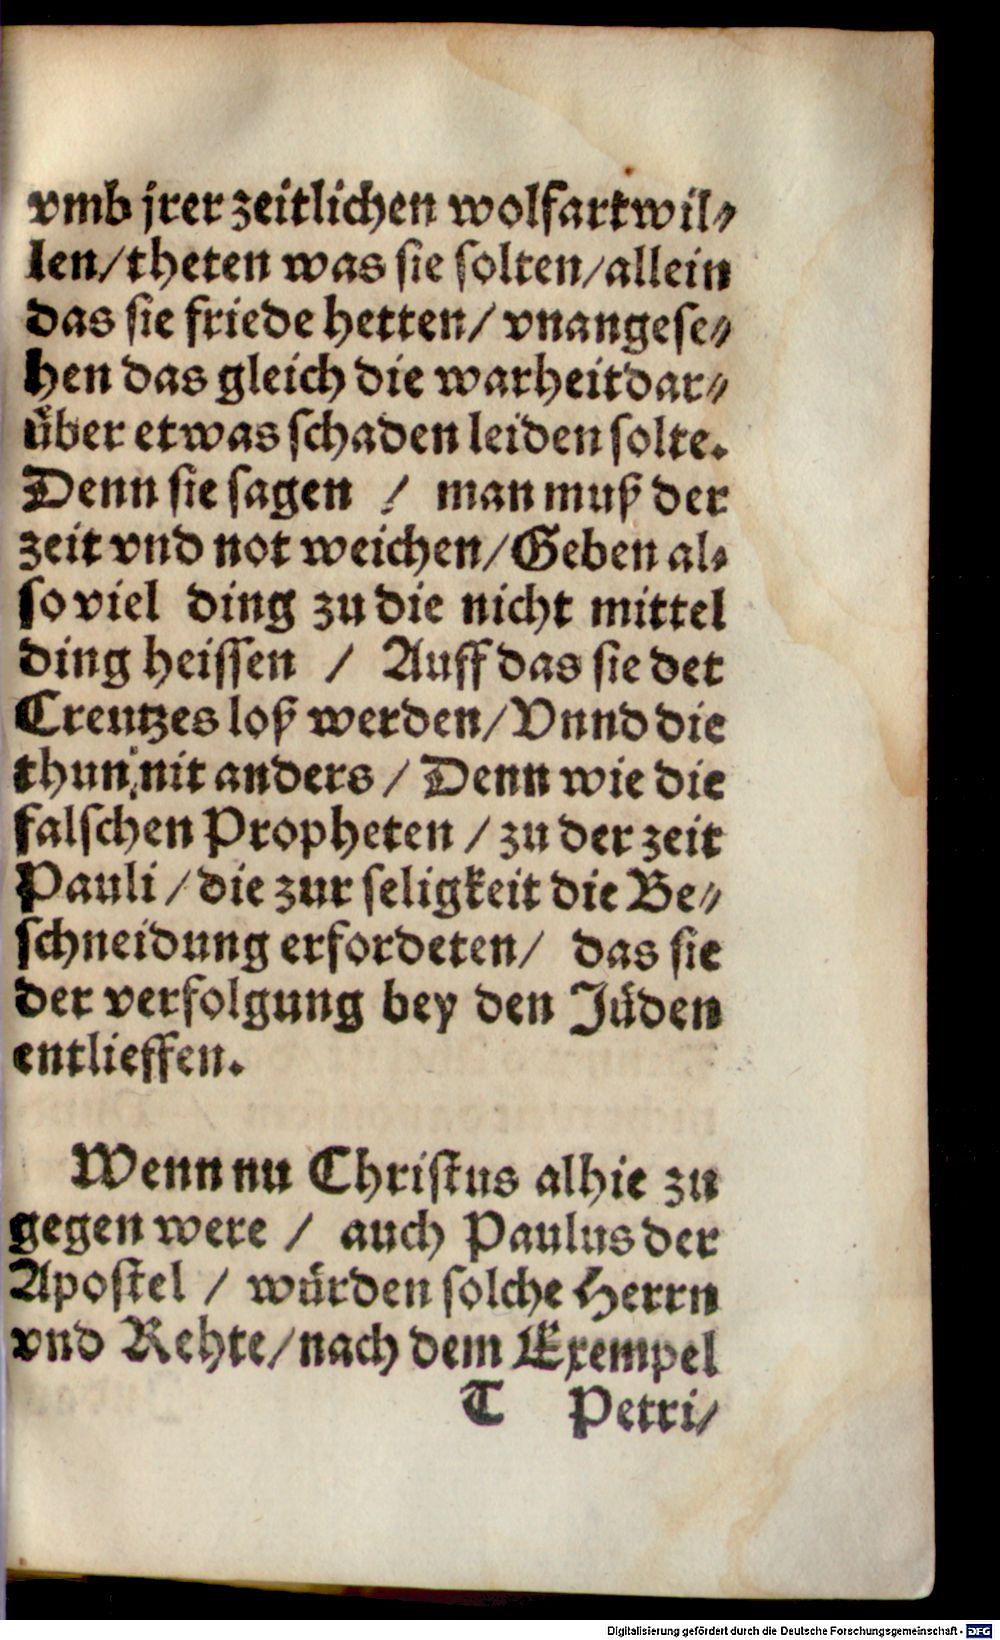 vmb jrer zeitlichen wolfart wil⸗
len/theten was sie solten/allein
das sie friede hetten/ vnangese⸗
hen das gleich die warheit dar⸗
über etwas schaden leiden solte.
Denn sie sagen / man muß der
zeit vnd not weichen/Geben al⸗
so viel ding zu die nicht mittel
ding heissen / Auff das sie det
Creutzes loß werden/Vnnd die
thun nit anders / Denn wie die
falschen Propheten / zu der zeit
Pauli / die zur seligkeit die Be⸗
schneidung erfordeten/ das sie
der verfolgung bey den Jüden
entlieffen.
Wenn nu Christus alhie zu
gegen were / auch Paulus der
Apostel / würden solche Herrn
vnd Rehte/nach dem Exempel
T Petri/
Digitalisierung gefördert durch die Deutsche Forschungsgemeinschaft - DFG